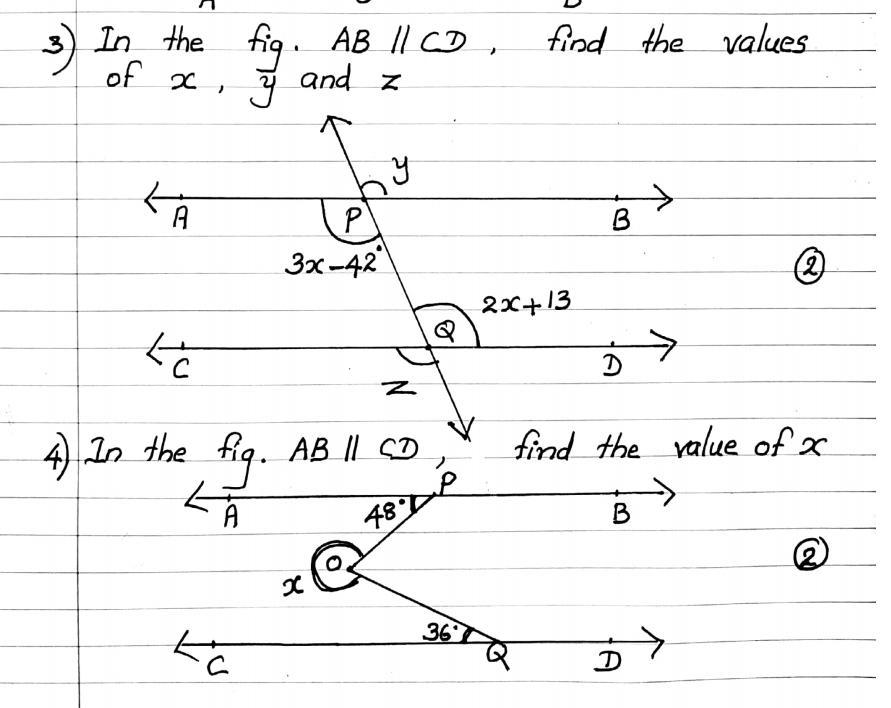 3) In the fig. AB || CD, find the values
of x, y and z
y
A P B
3x-42°
②
2x+13
Q
C D
z
4) In the fig. AB || CD, find the value of x
P
A 48° B
②
O
x
36°
C Q D